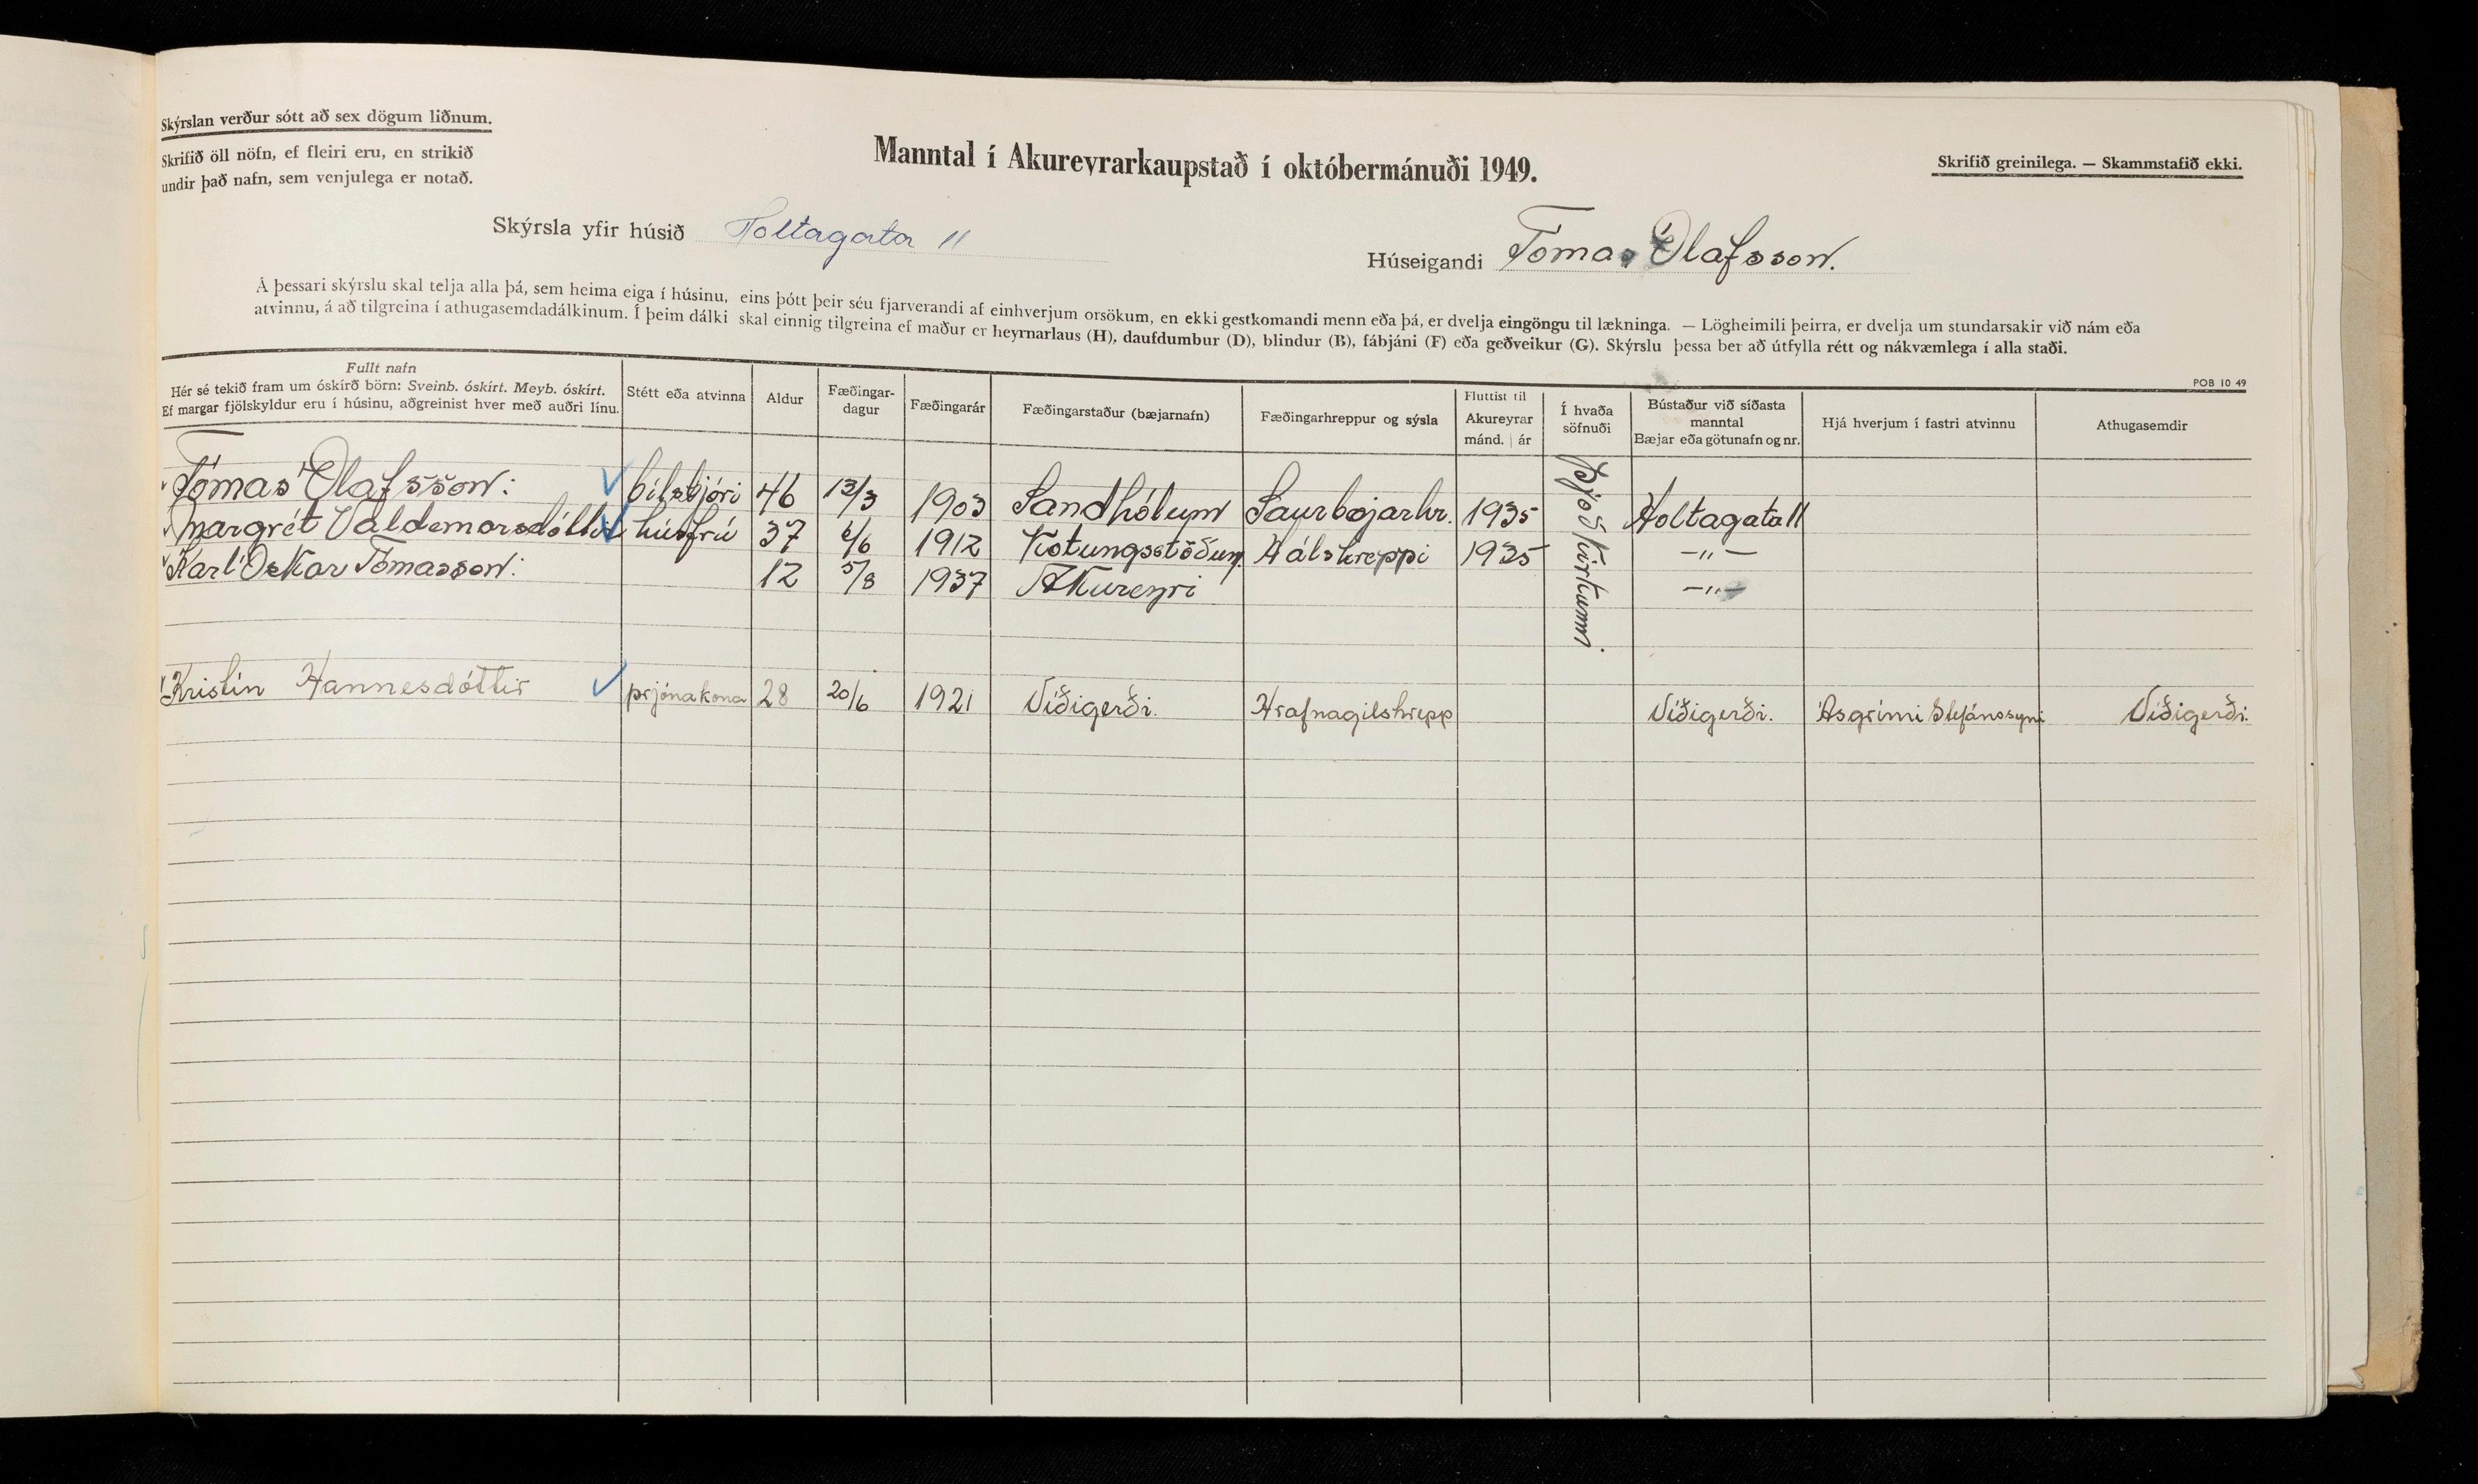 Skýrslan verður sótt að sex dögum liðnum.
Skrifið öll nöfn, ef fleiri eru, en strikið
undir það nafn, sem venjulega er notað.
Manntal í Akureyrarkaupstað í októbermánuði 1949.
Skrifið greinilega. — Skammstafið ekki.
Skýrsla yfir húsið Holtagata 11
Húseigandi Tómas Ólafsson.
Á þessari skýrslu skal telja alla þá, sem heima eiga í húsinu, eins þótt þeir séu fjarverandi af einhverjum orsökum, en ekki gestkomandi menn eða þá, er dvelja eingöngu til lækninga. — Lögheimili þeirra, er dvelja um stundarsakir við nám eða
atvinnu, á að tilgreina í athugasemdadálkinum. Í þeim dálki skal einnig tilgreina ef maður er heyrnarlaus (H), daufdumbur (D), blindur (B), fábjáni (F) eða geðveikur (G). Skýrslu þessa ber að útfylla rétt og nákvæmlega í alla staði.
POB 10 49
Fullt nafn
Hér sé tekið fram um óskírð börn: Sveinb. óskírt. Meyb. óskírt.
Ef margar fjölskyldur eru í húsinu, aðgreinist hver með auðri línu.
Stétt eða atvinna
Aldur
Fæðingar-
dagur
Fæðingarár
Fæðingarstaður (bæjarnafn)
Fæðingarhreppur og sýsla
Fluttist til
Akureyrar
mánd. | ár
Í hvaða
söfnuði
Bústaður við síðasta
manntal
Bæjar eða götunafn og nr.
Hjá hverjum í fastri atvinnu
Athugasemdir
Tómas Ólafsson: bílstjóri 46 13/3 1903 Sandhólum Saurbæjarhr. 1935 Þjóðkirkunni Holtagata 11
Margrét Valdemarsdóttir húsfrú 37 6/6 1912 Kotungsstöðum Hálshreppi 1935 —"—
Karl Óskar Tómasson: 12 5/8 1937 Akureyri —"—
Kristín Hannesdóttir prjónakona 28 20/6 1921 Víðigerði. Hrafnagilshrepp Víðigerði. Ásgrími Stefánssyni Víðigerði.